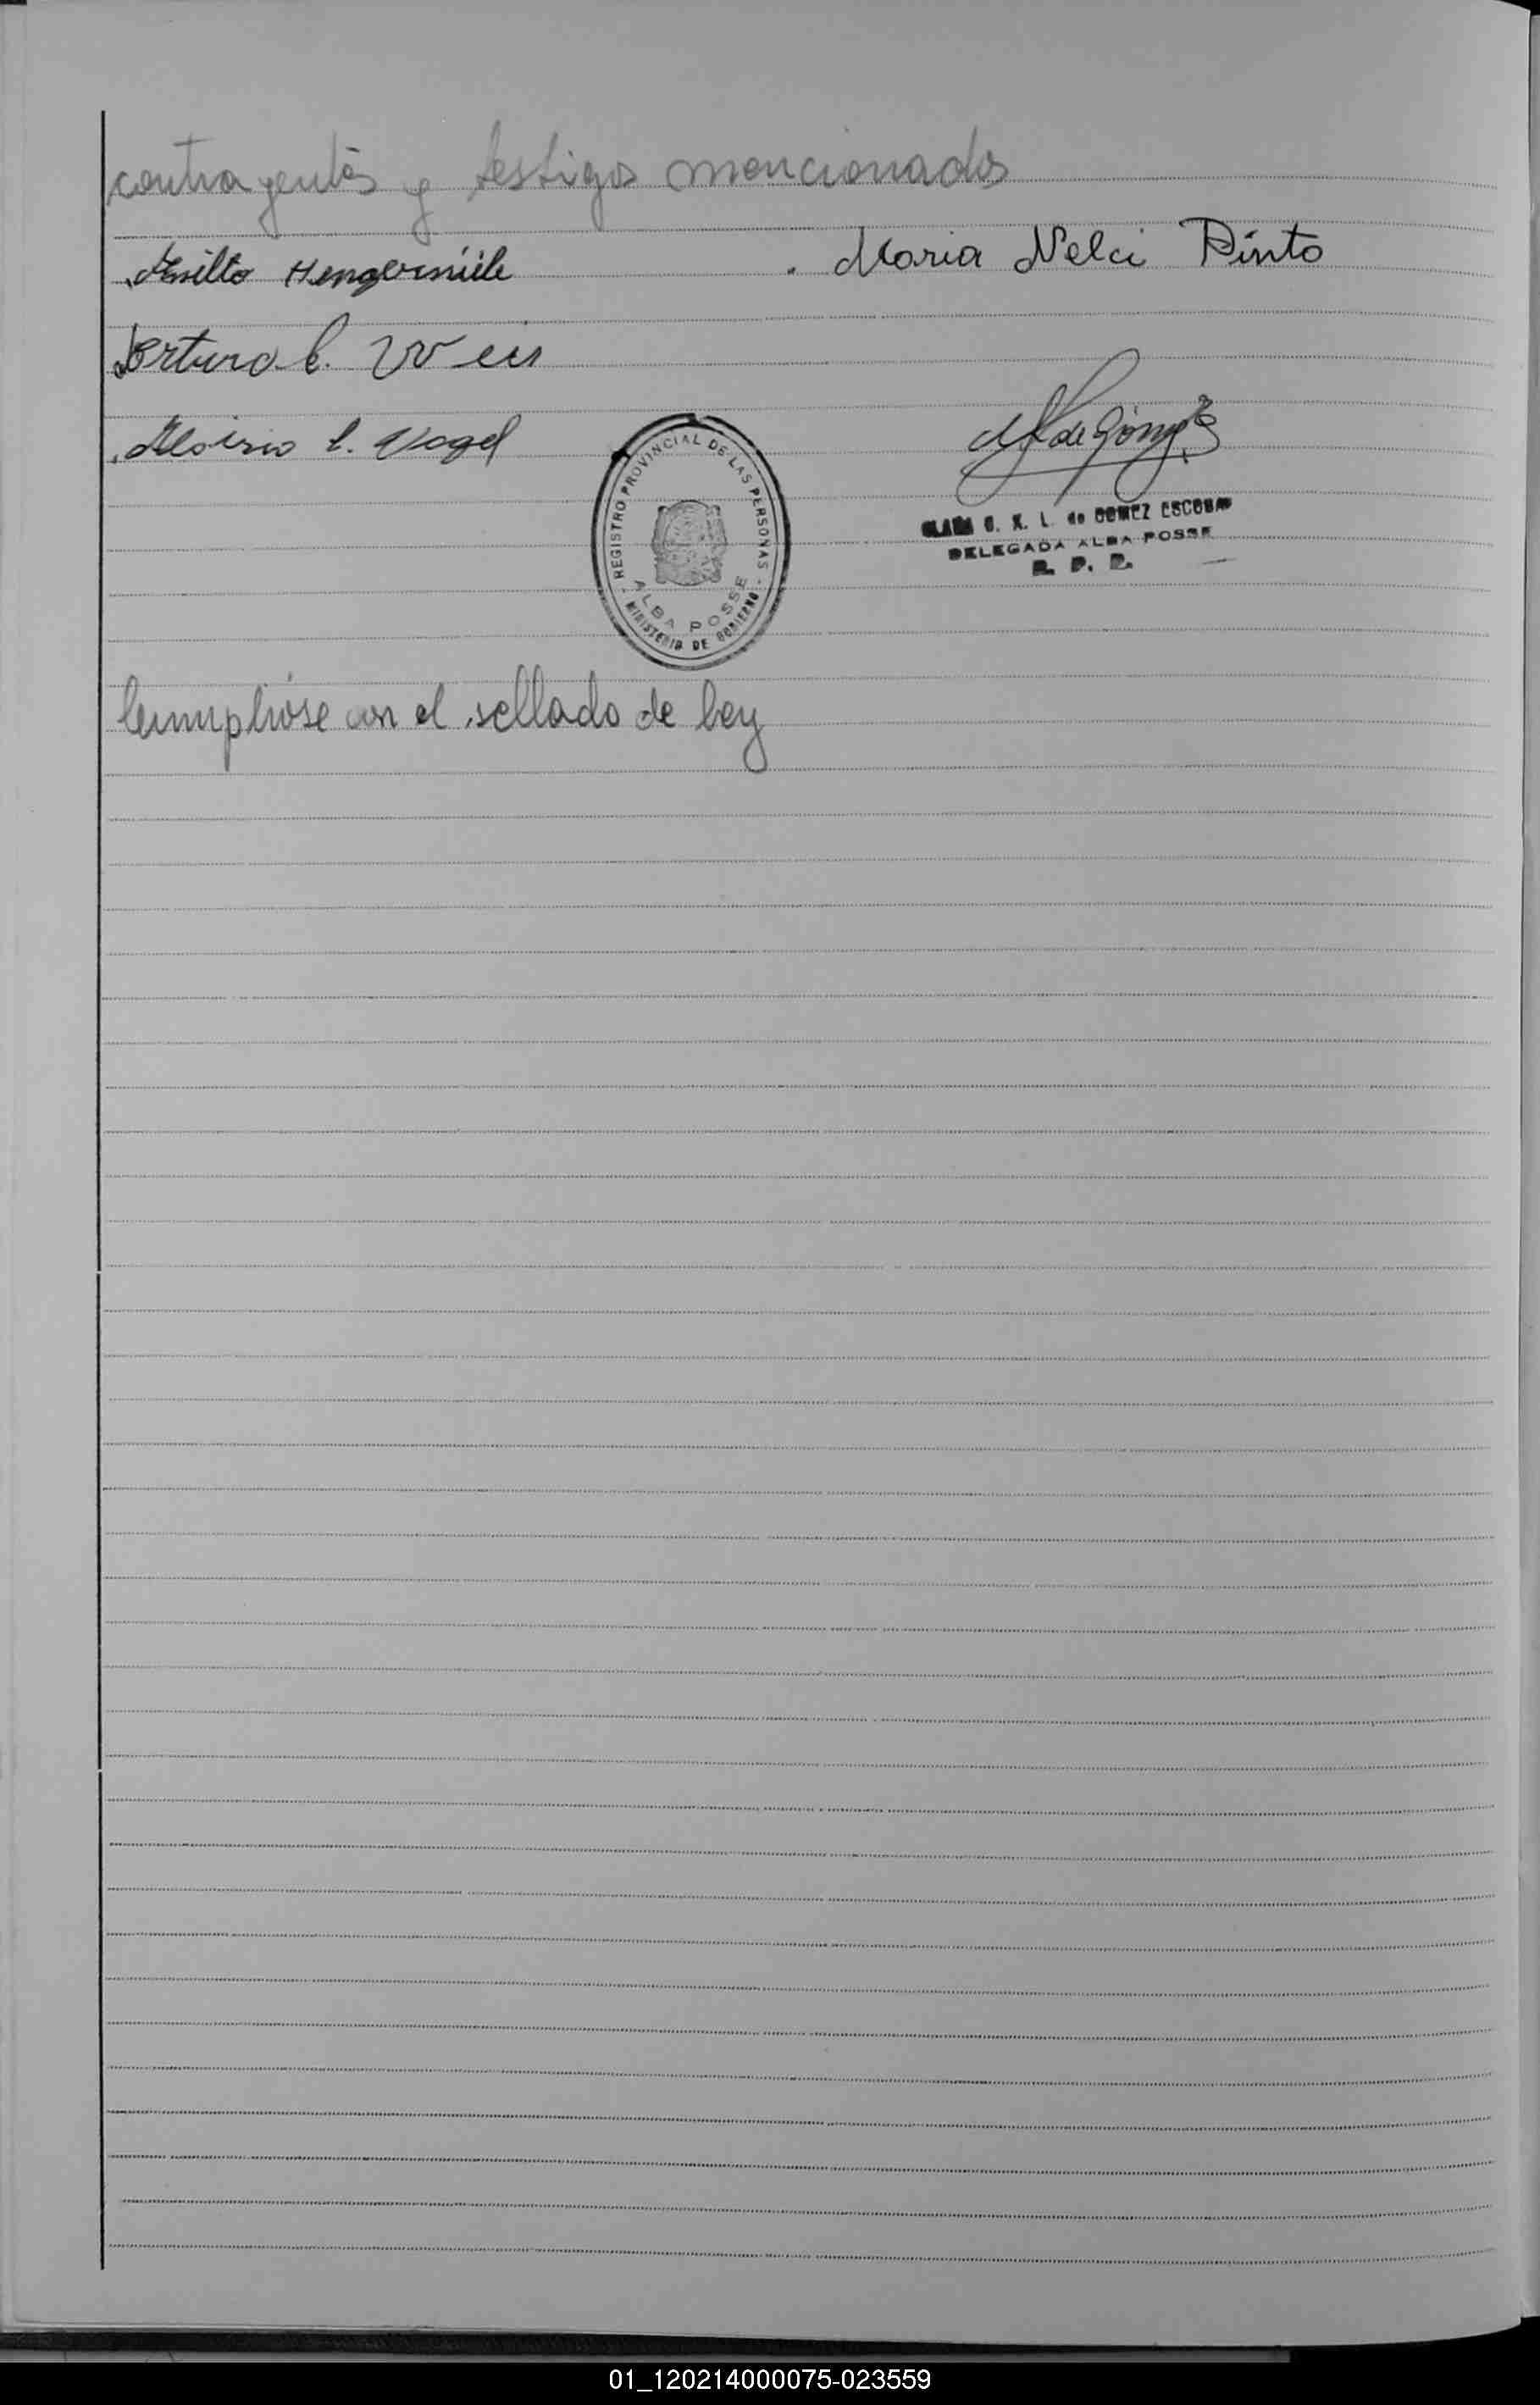 contrayentes y testigos mencionados
Hengermüle Maria Nelci Pinto
Arturo C. Weis
Aloisio C. Vogel
de Gómez
REGISTRO PROVINCIAL DE LAS PERSONAS
ALBA POSSE
MINISTERIO DE GOBIERNO
L. de GOMEZ ESCOBAR
DELEGADA ALBA POSSE
R. P. P.
Cumplióse con el sellado de ley
01_120214000075-023559